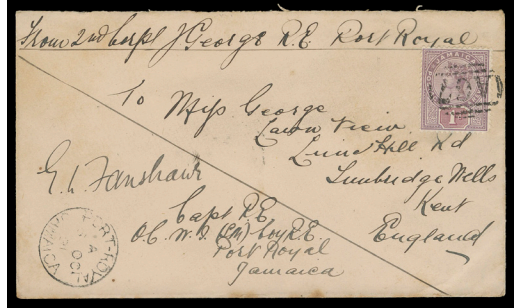 From 2nd Corpl J George R.E. Port Royal
To Miss George
Lawn View
Hill Rd
Tunbridge Wells
Kent
England
Fanshawe
Capt R.E.
O.C. W.I. Coy R.E.
Port Royal
Jamaica
JAMAICA
1D
PORT ROYAL
A
OC
JAMAICA